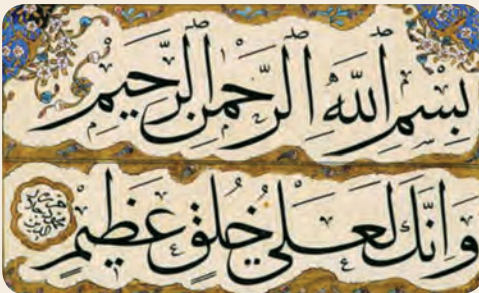 بِسْمِ اللّٰهِ الرَّحْمٰنِ الرَّحِيمِ
وَاِنَّكَ لَعَلٰى خُلُقٍ عَظِيمٍ